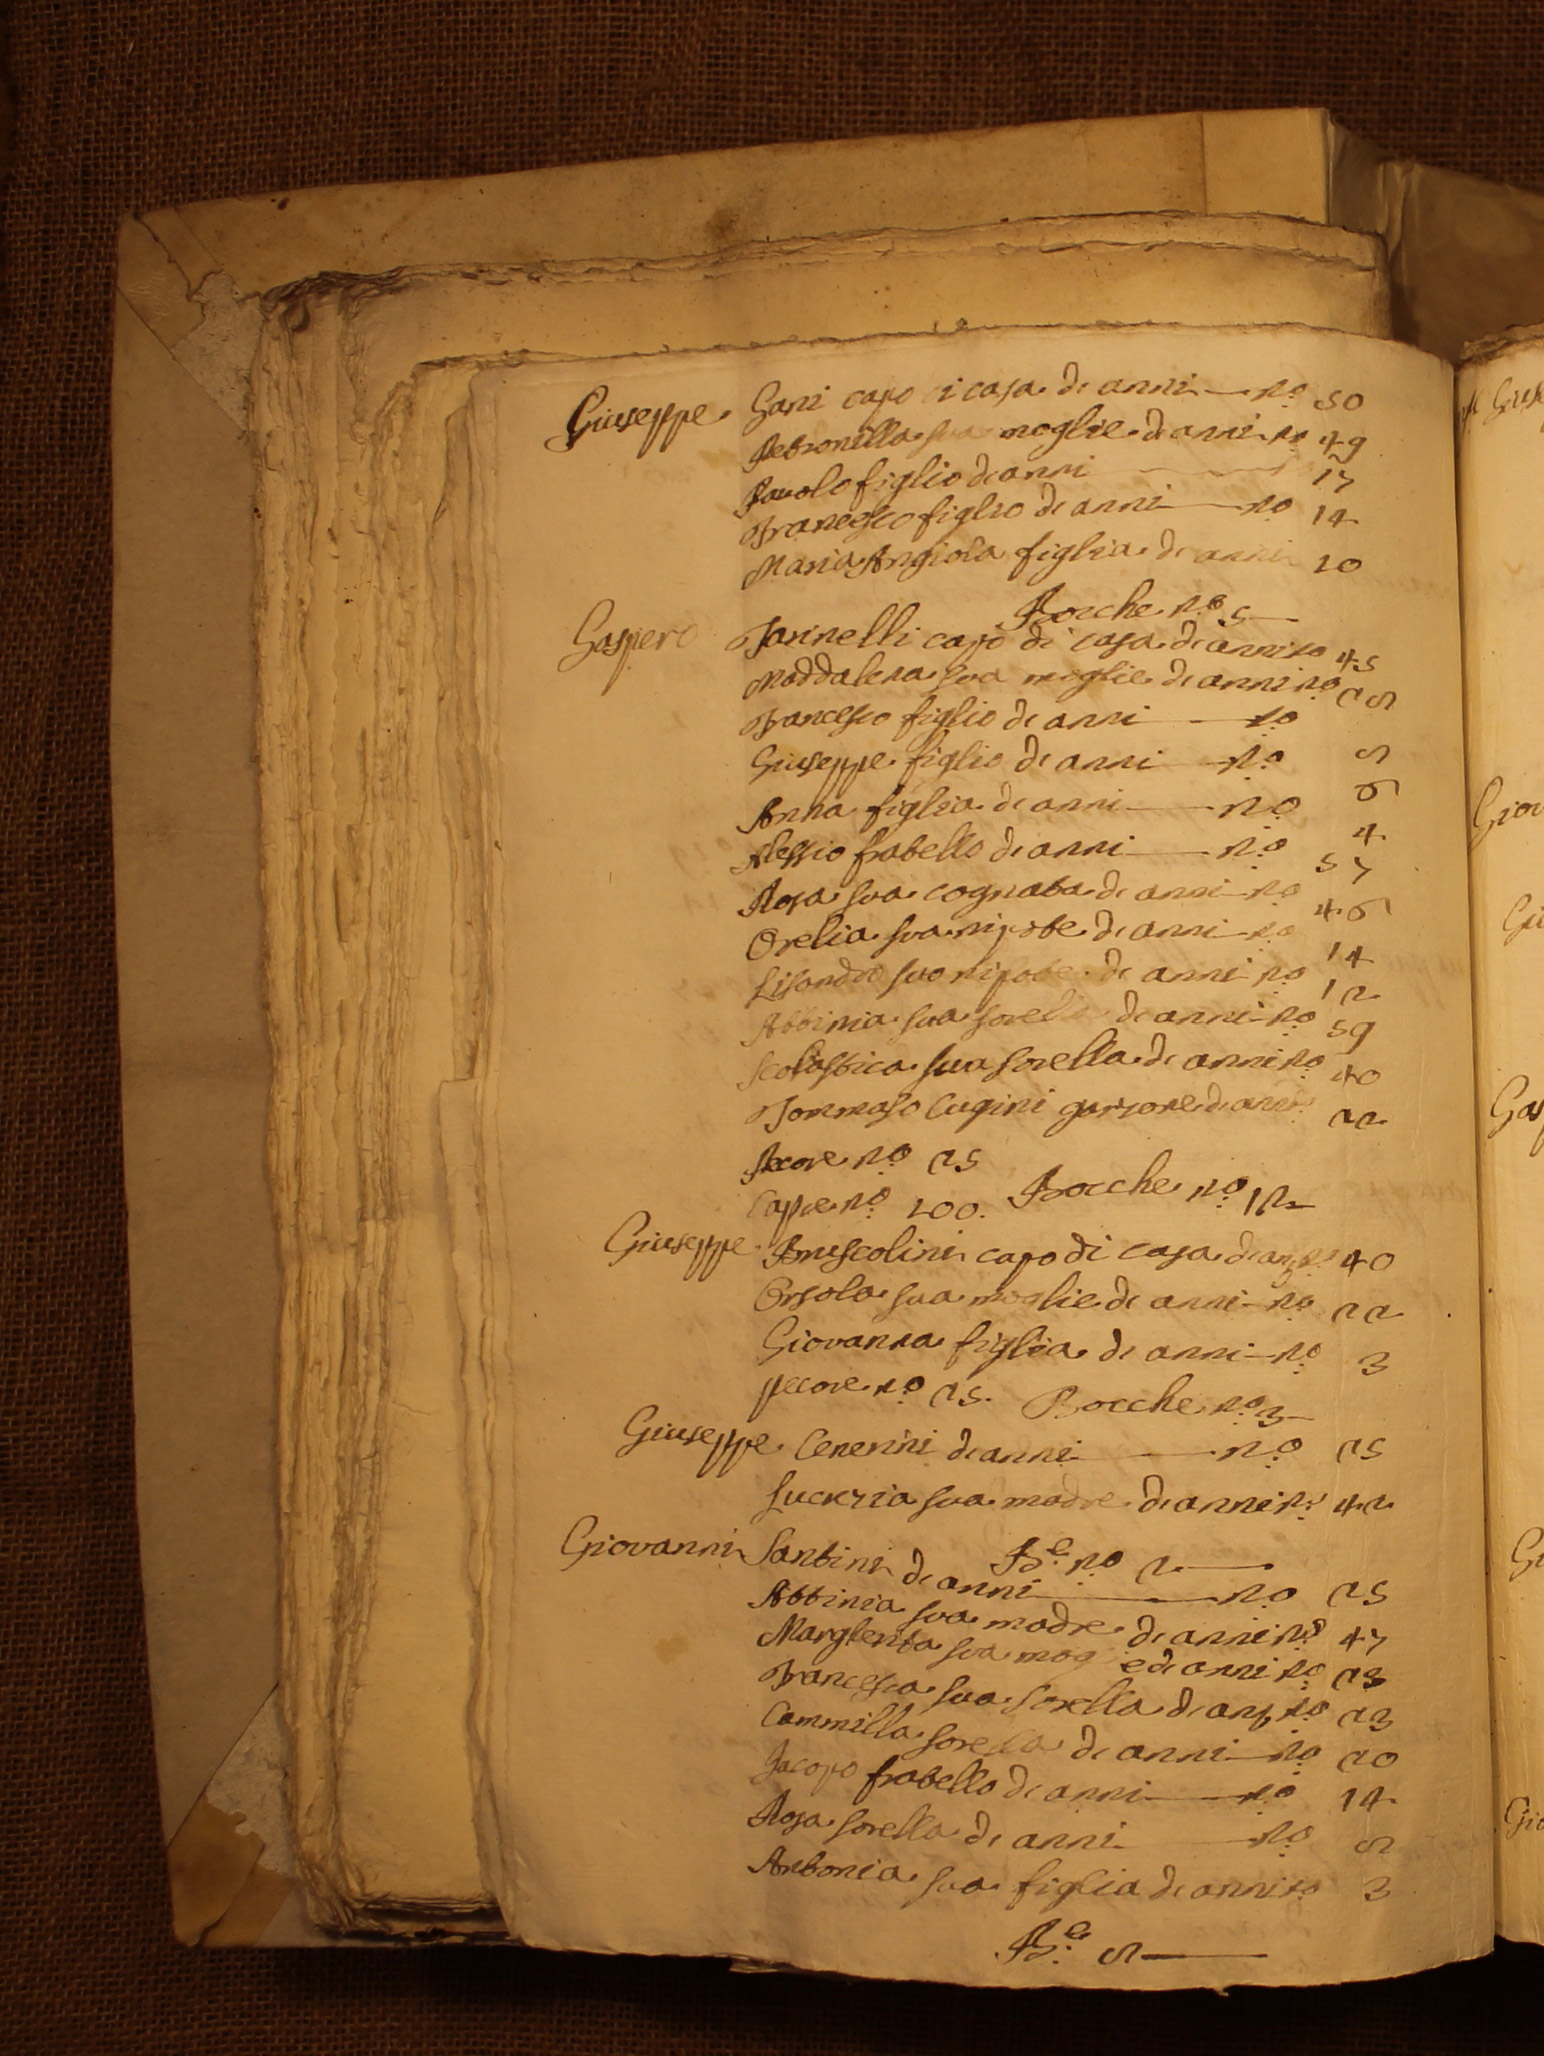 Giuseppe Gani capo di casa di anni — no 50
Petronilla sua moglie di anni no 49
Pauolo figlio di anni 17
Francesco figlio di anni — no 14
Maria Angiola figlia di anni 10
Bocche no 5 —
Gaspero Farinelli capo di casa di anni no 45
Maddalena sua moglie di anni no 28
Francesco figlio di anni — no 8
Giuseppe figlio di anni — no 6
Anna figlia di anni — no 4
Alessio fratello di anni — no 57
Rosa sua cognata di anni no 46
Orelia sua nipote di anni — no 14
Lisandro suo nipote di anni no 12
Abbinia sua sorella di anni no 59
Scolastica sua sorella di anni no 40
Tommaso Cugini garzone di anni 22
Pecore no 25
Capre no 100. Bocche no 12
Giuseppe Bruscolini capo di casa di anni 40
Orsola sua moglie di anni no 22
Giovanna figlia di anni — no 3
pecore no 25. Bocche no 3 —
Giuseppe Cenerini di anni — no 25
Lucrezia sua madre di anni no 42
Be: no 2 —
Giovanni Santini di anni — no 25
Abbinia sua madre di anni no 47
Margherita sua mog e di anni no
Francesca sua sorella di an no 23
Cammilla sorella di anni — no 20
Jacopo fratello di anni — no 14
Rosa sorella di anni — no 8
Antonia sua figlia di anni no 3
Be: 8 —
Giu
Giov
Gas
Gio